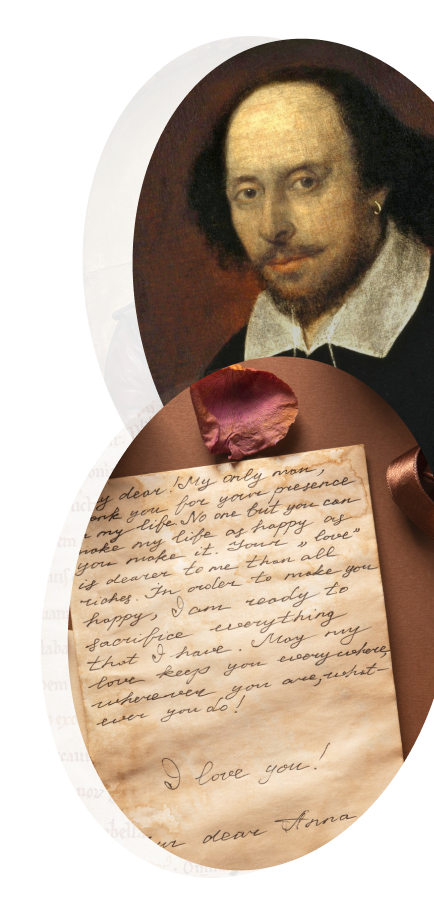 y dear! My only man,
ank you for your presence
n my life. No one but you can
make my life as happy as
you make it. Your "love"
is dearer to me than all
riches. In order to make you
happy, I am ready to
sacrifice everything
that I have. May my
love keep you everywhere,
wherever you are, what-
ever you do!
I love you!
ur dear Anna